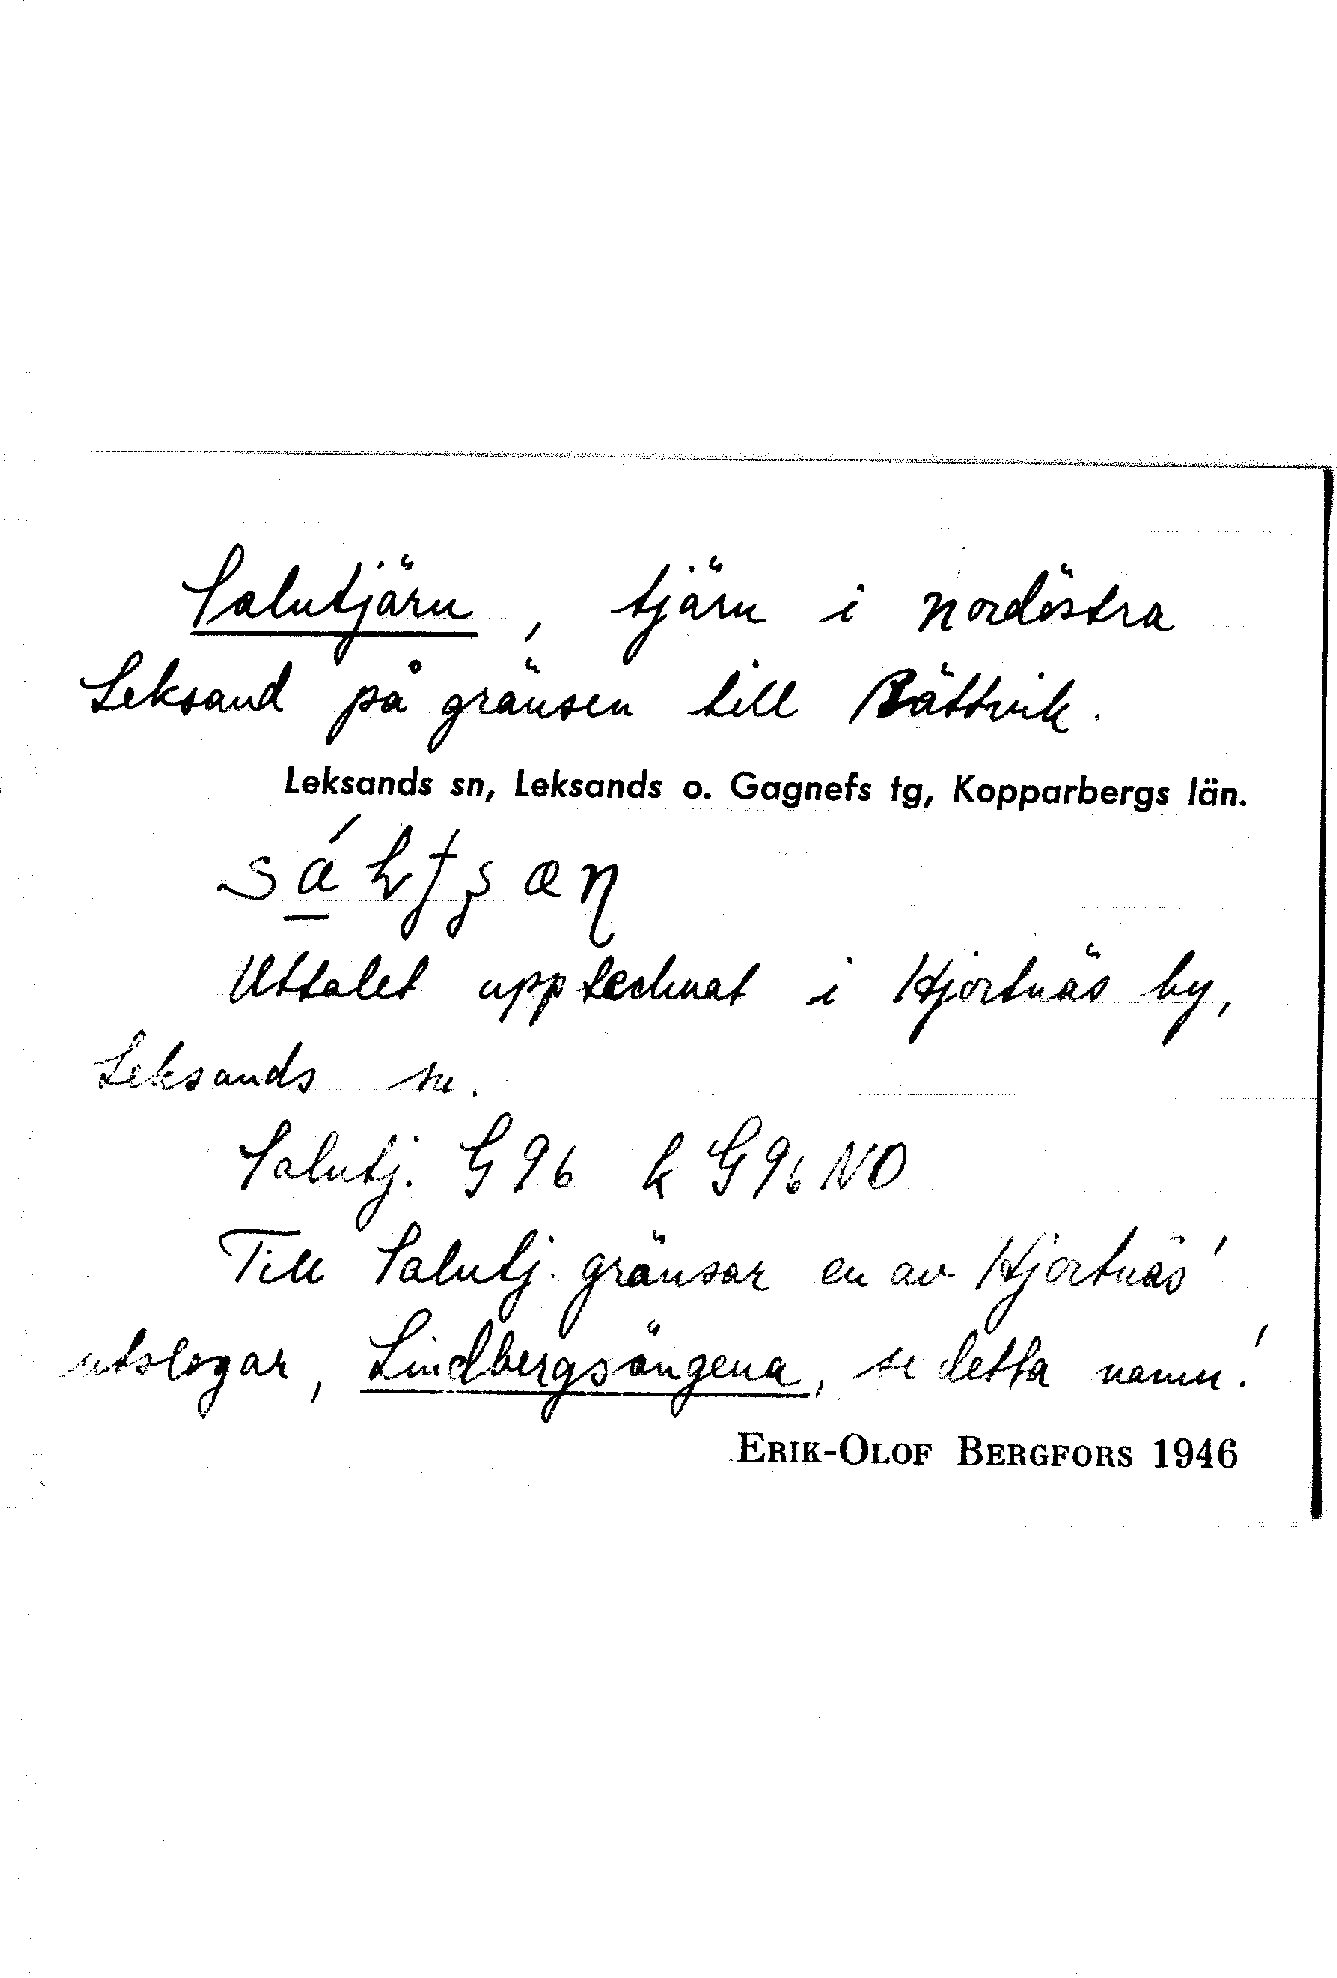 Salutjärn, tjärn i nordöstra
Leksand på gränsen till Rättvik.
Leksands sn, Leksands o. Gagnefs tg, Kopparbergs län.
Uttalet upptecknat i Hjortnäs by,
Leksands sn.
Salutj. G96 k G96NO
Till Salutj. gränsar en av Hjortnäs'
utslogar, Lindbergsängena, se detta namn!
ERIK-OLOF BERGFORS 1946